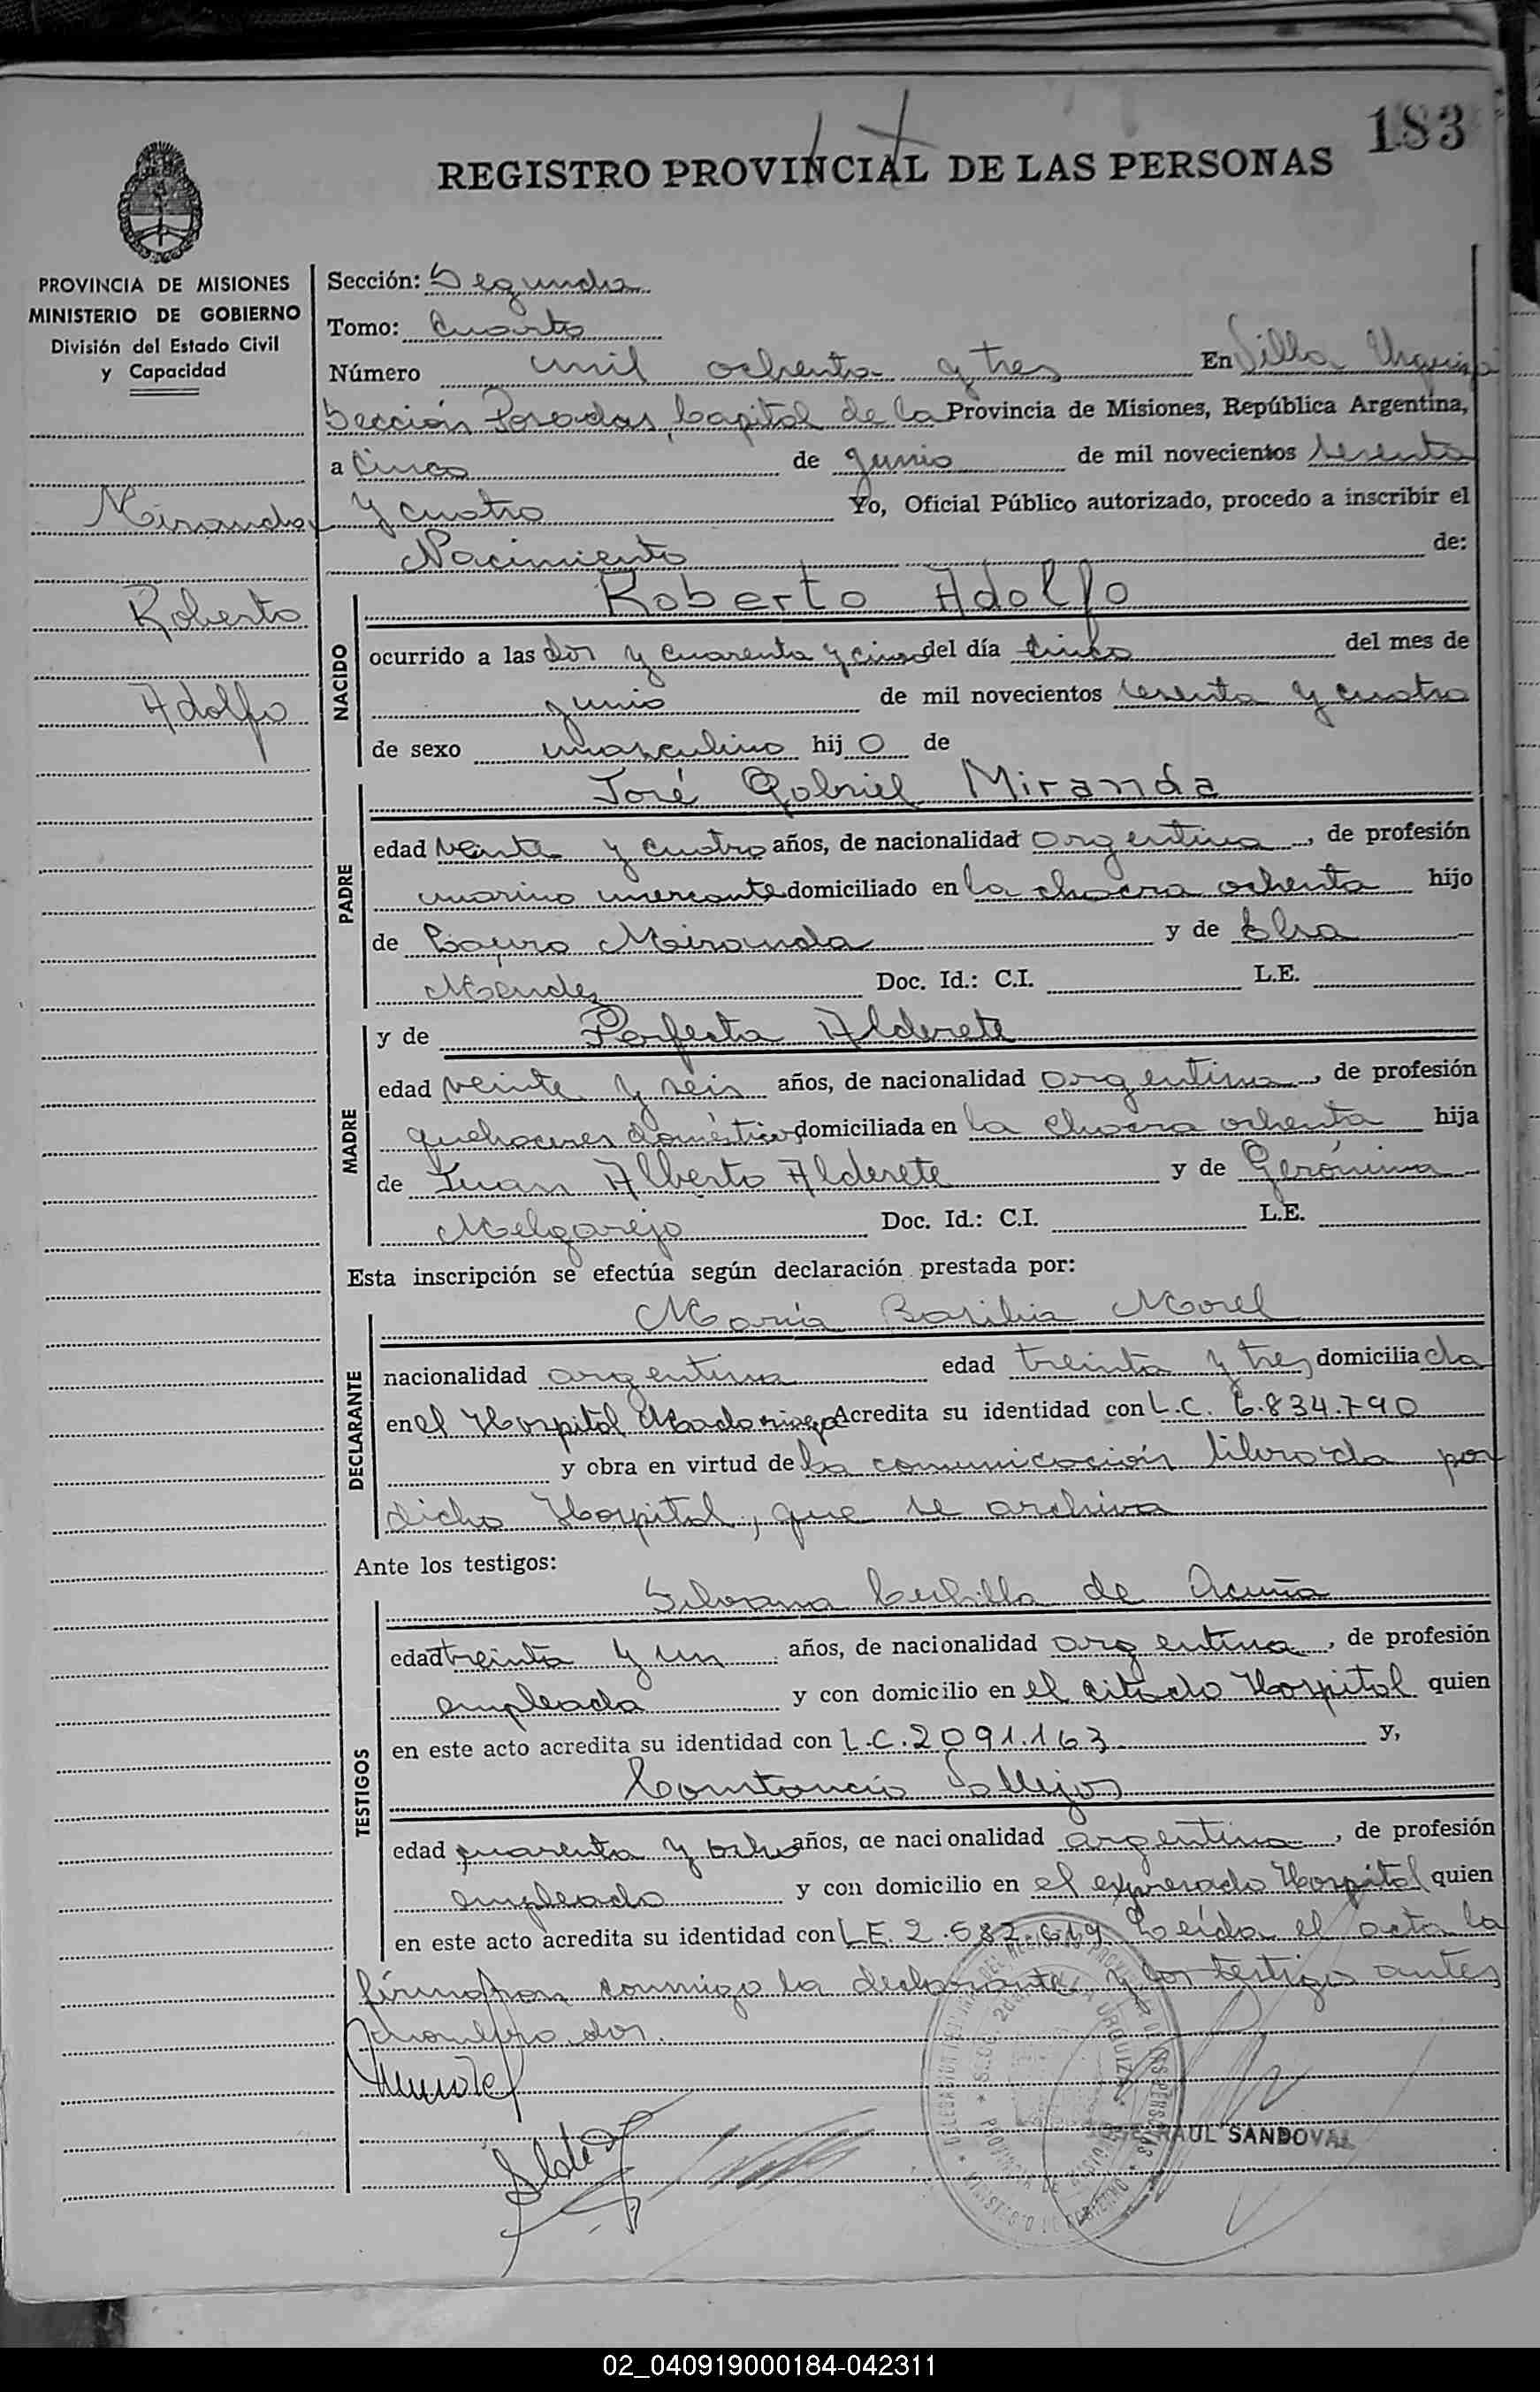 183
REGISTRO PROVINCIAL DE LAS PERSONAS
PROVINCIA DE MISIONES
MINISTERIO DE GOBIERNO
División del Estado Civil
y Capacidad
Miranda,
Roberto
Adolfo
Sección: Segunda
Tomo: Cuarto
Número mil ochenta y tres En Villa Urquiza
Sección Posadas, Capital de la Provincia de Misiones, República Argentina,
a cinco de junio de mil novecientos sesenta
y cuatro Yo, Oficial Público autorizado, procedo a inscribir el
Nacimiento de:
NACIDO
Roberto Adolfo
ocurrido a las dos y cuarenta y cinco del día cinco del mes de
junio de mil novecientos sesenta y cuatro
de sexo masculino hijo de
PADRE
José Gabriel Miranda
edad veinte y cuatro años, de nacionalidad argentina, de profesión
marino mercante domiciliado en la chacra ochenta hijo
de Lauro Miranda y de Elsa
Méndez Doc. Id.: C.I. L.E.
MADRE
y de Perfecta Alderete
edad veinte y seis años, de nacionalidad argentina, de profesión
quehaceres domésticos domiciliada en la chacra ochenta hija
de Juan Alberto Alderete y de Gerónima
Melgarejo Doc. Id.: C.I. L.E.
Esta inscripción se efectúa según declaración prestada por:
DECLARANTE
María Basilia Morel
nacionalidad argentina edad treinta y tres domiciliada
en el Hospital Madariaga Acredita su identidad con L.C. 6.834.790
y obra en virtud de la comunicación librada por
dicho Hospital, que se archiva
Ante los testigos:
TESTIGOS
Silvana de Acuña
edad treinta y un años, de nacionalidad argentina, de profesión
empleada y con domicilio en el citado Hospital quien
en este acto acredita su identidad con L.C. 2091.163 y,
Constancio Vallejos
edad cuarenta y ocho años, de nacionalidad argentina, de profesión
empleado y con domicilio en el expresado Hospital quien
en este acto acredita su identidad con L.E. 2.582.619 Leída el acta la
firmaron conmigo la declarante y los testigos antes
nombrados.
SECC. 2da. VILLA URQUIZA
PROVINCIA DE MISIONES
MINISTERIO DE GOBIERNO
JOSE RAUL SANDOVAL
02_040919000184-042311